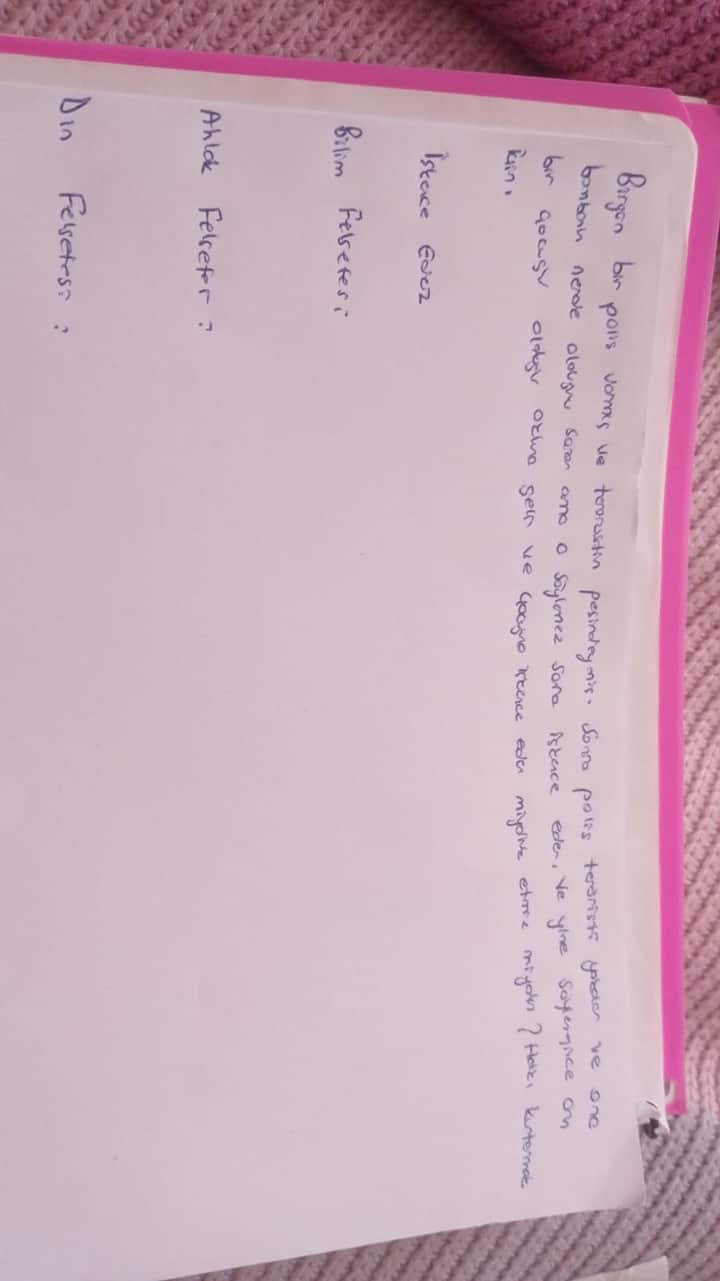 Birgün bir polis varmış ve teroristin peşindeymiş. Sonra polis teröristi yakalar ve ona
bombanın nerde olduğunu sorar ama o söylemez sora işkence eder. ve yine söylemeyince on
bir çocuğu olduğu aklına gelir ve çocuğuna işkence eder miydiniz etmez miydiniz? Halkı kurtarmak
için.
İşkence Ederiz
Bilim Felsefesi
Ahlak Felsefesi ?
Din Felsefesi ?